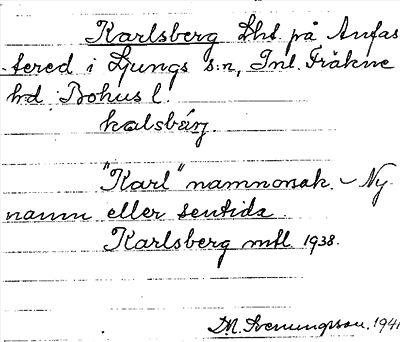 Karlsberg Lht på Anfas
tered i Ljungs s:n, Inl. Fräkne
hd. Bohus l.
kalsbärj.
"Karl" namnorsak. – Ny
namn eller sentida
Karlsberg mtl 1938.
D.M. Svenungsson. 1941